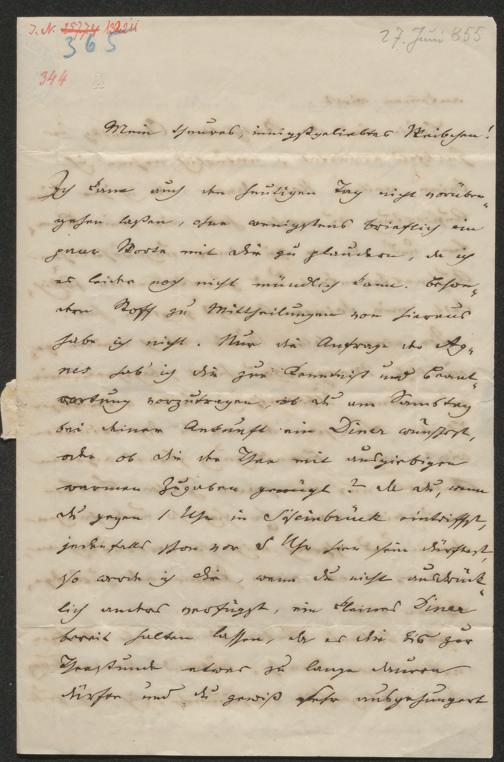 J. N. 25774 
365
27. Juni 855
344
Mein theures, innigstgeliebtes Weibchen!
Ich kann auch den heutigen Tag nicht vorüber-
gehen lassen, ohne wenigstens brieflich ein
paar Worte mit dir zu plaudern, da ich
es leider noch nicht mündlich kann. Beson-
dern Stoff zu Mittheilungen von hieraus
habe ich nicht. Nur die Anfrage der Ag-
nes hab' ich dir zur Kenntniß und Beant-
wortung vorzutragen, ob du am Samstag
bei deiner Ankunft ein Diner wünschest,
oder ob dir der Thee mit ausgiebigen
warmen Zugaben genügt? Da du, wenn
du gegen 1 Uhr in eintriffst,
jedenfalls schon vor 5 Uhr hier sein dürftest,
so werde ich dir, wenn du nicht ausdrück-
lich anders verfügst, ein kleines Diner
bereit halten lassen, da es dir bis zur
Theestunde etwas zu lange dauern
dürfte und du gewiß sehr ausgehungert